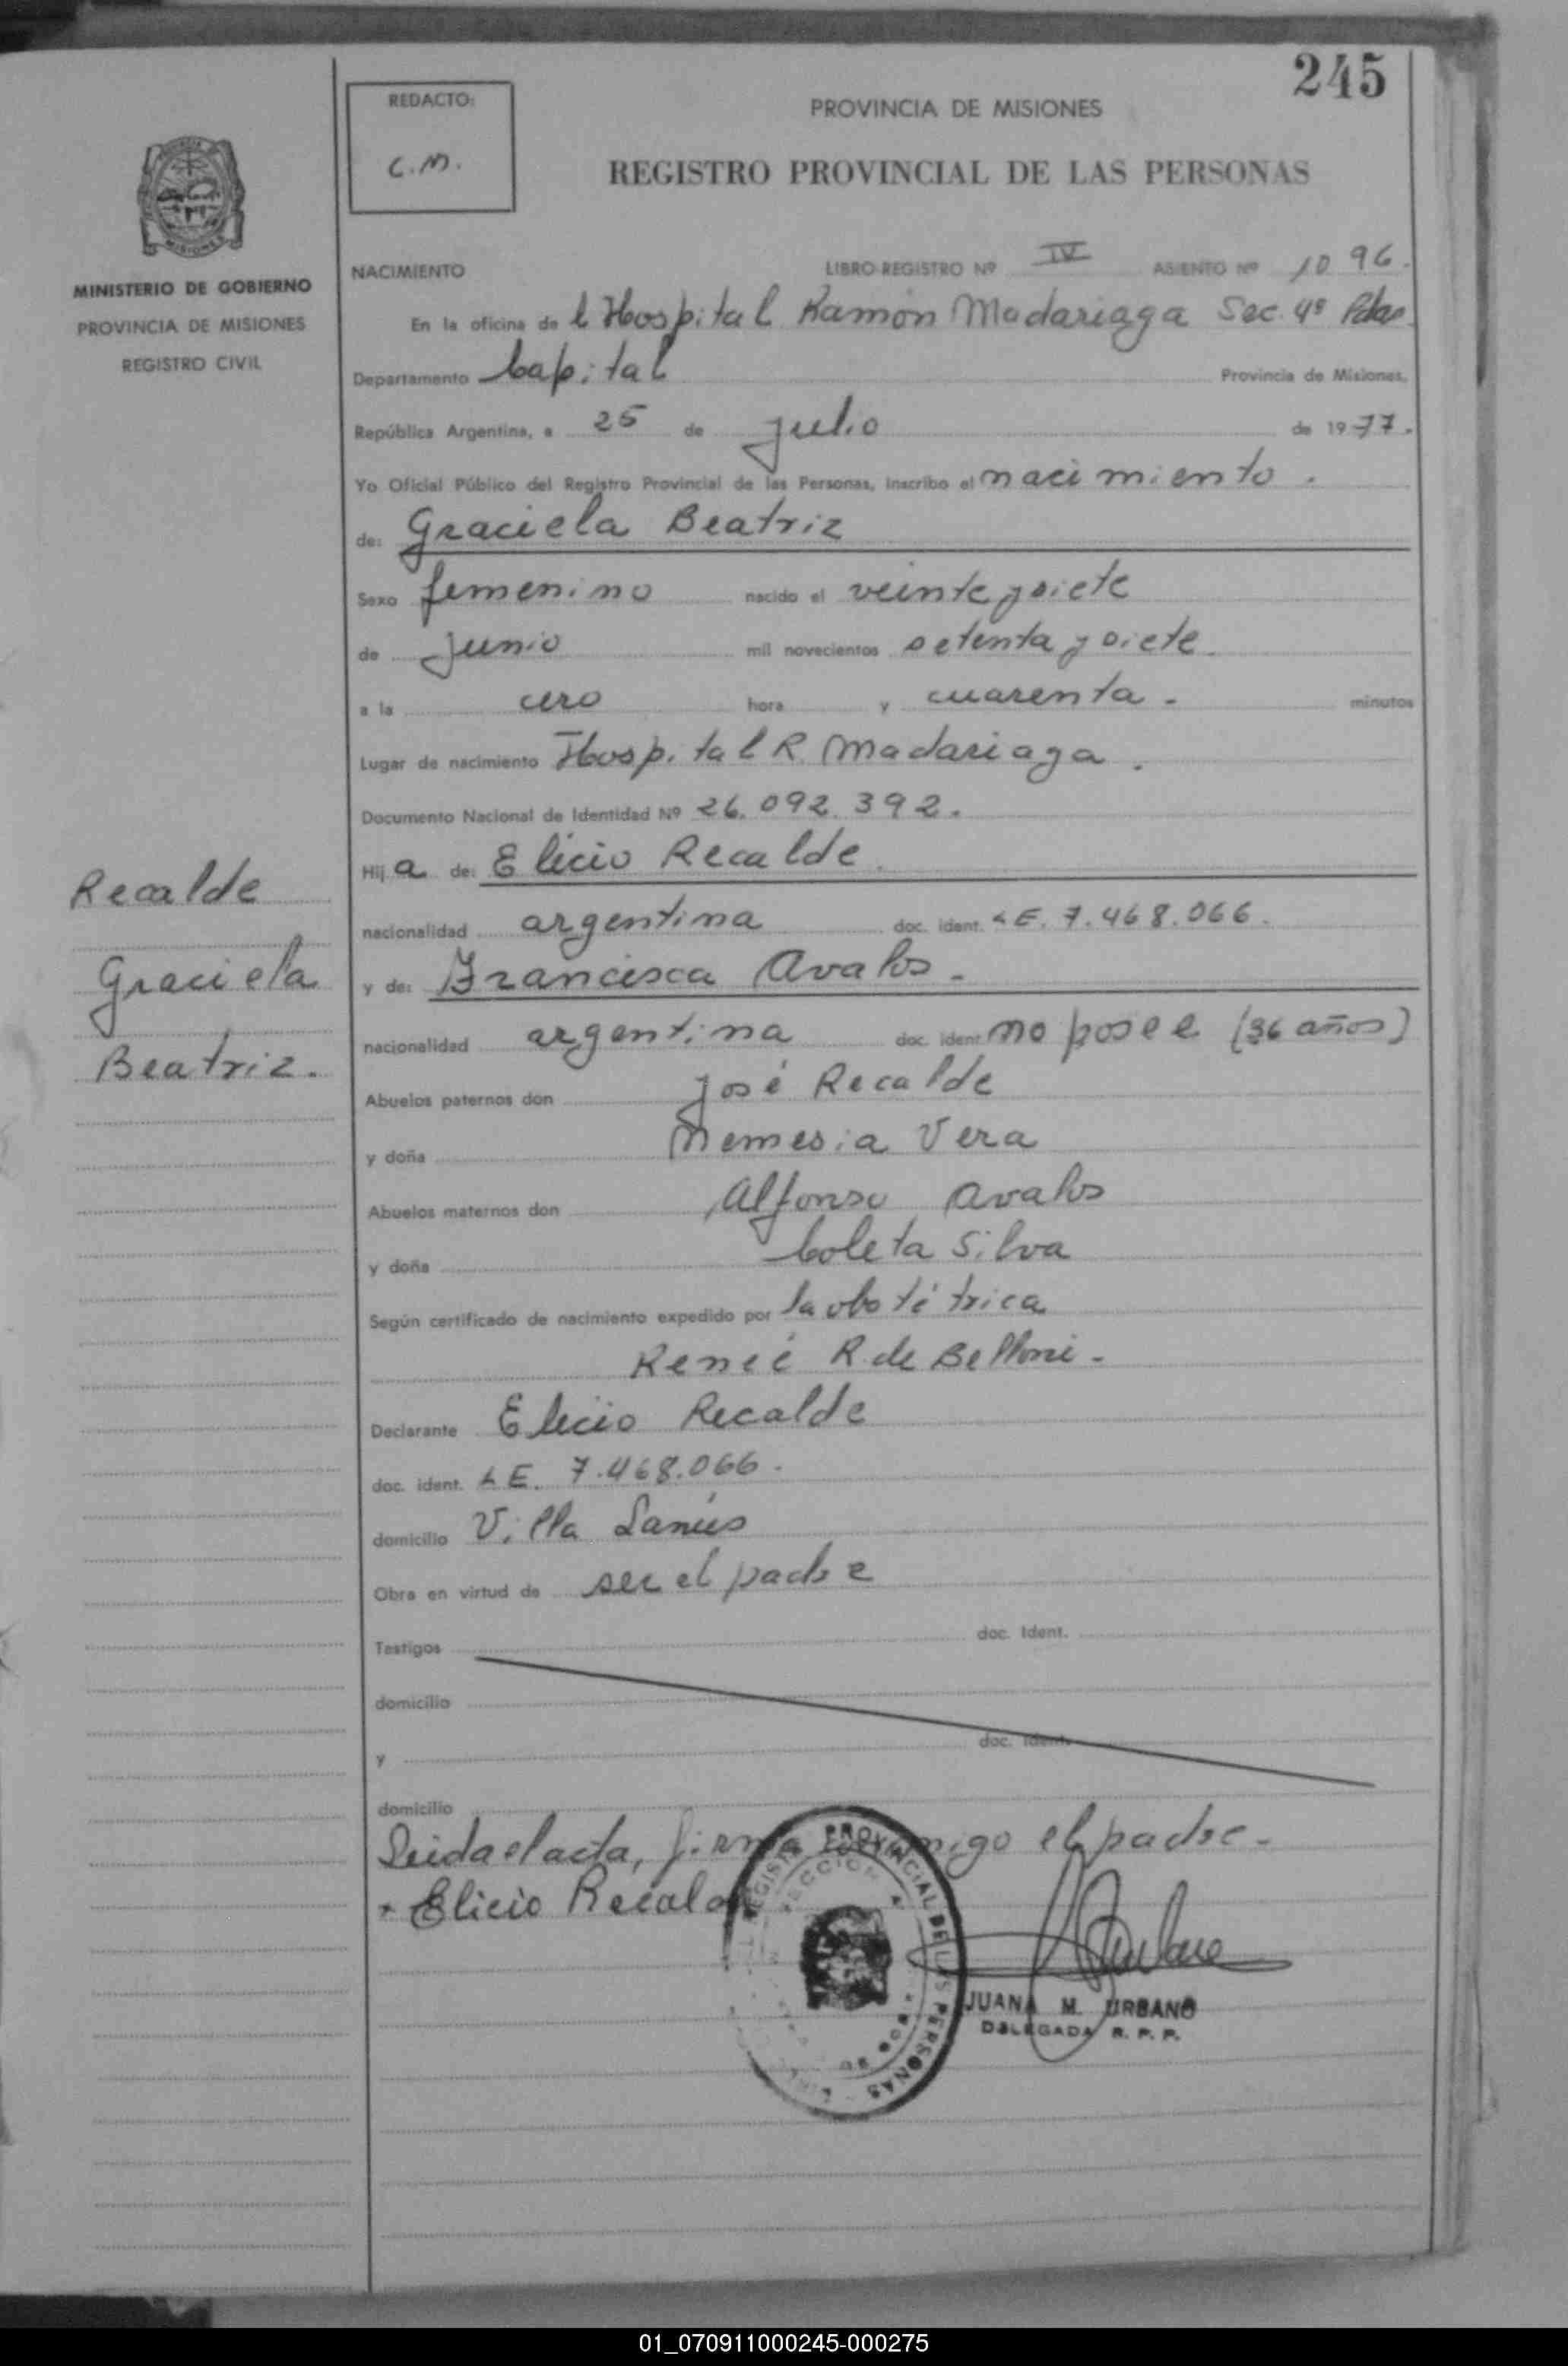 245
REDACTO:
C.M.
PROVINCIA DE MISIONES
REGISTRO PROVINCIAL DE LAS PERSONAS
MISIONES
MINISTERIO DE GOBIERNO
PROVINCIA DE MISIONES
REGISTRO CIVIL
NACIMIENTO LIBRO-REGISTRO Nº IV ASIENTO Nº 1096.
En la oficina de l Hospital Ramón Madariaga Sec. 4ª Pdas
Departamento Capital Provincia de Misiones,
República Argentina, a 25 de julio de 1977.
Yo Oficial Público del Registro Provincial de las Personas, inscribo el nacimiento.
de: Graciela Beatriz
Sexo femenino nacido el veinte y siete
de Junio mil novecientos setenta y siete.
a la cero hora y cuarenta - minutos
Lugar de nacimiento Hospital R. Madariaga.
Documento Nacional de Identidad Nº 26.092.392.
Hij a de: Elicio Recalde.
nacionalidad argentina doc. ident. LE. 7.468.066.
y de: Francisca Avalos -
nacionalidad argentina doc. ident. no posee (36 años)
Abuelos paternos don José Recalde
y doña Nemesia Vera
Abuelos maternos don Alfonso Avalos
y doña Coleta Silva
Según certificado de nacimiento expedido por la obstétrica
Reneé R. de Belloni -
Declarante Elicio Recalde
doc. ident. LE. 7.468.066.
domicilio Villa Lanús
Obra en virtud de ser el padre
Testigos doc. Ident.
domicilio
y doc. Ident.
domicilio
Leida el acta, firma conmigo el padre -
Elicio Recalde
REGISTRO PROVINCIAL DE LAS PERSONAS
SECCION
JUANA M. URBANO
DELEGADA R. P. P.
Recalde
Graciela
Beatriz.
01_070911000245-000275